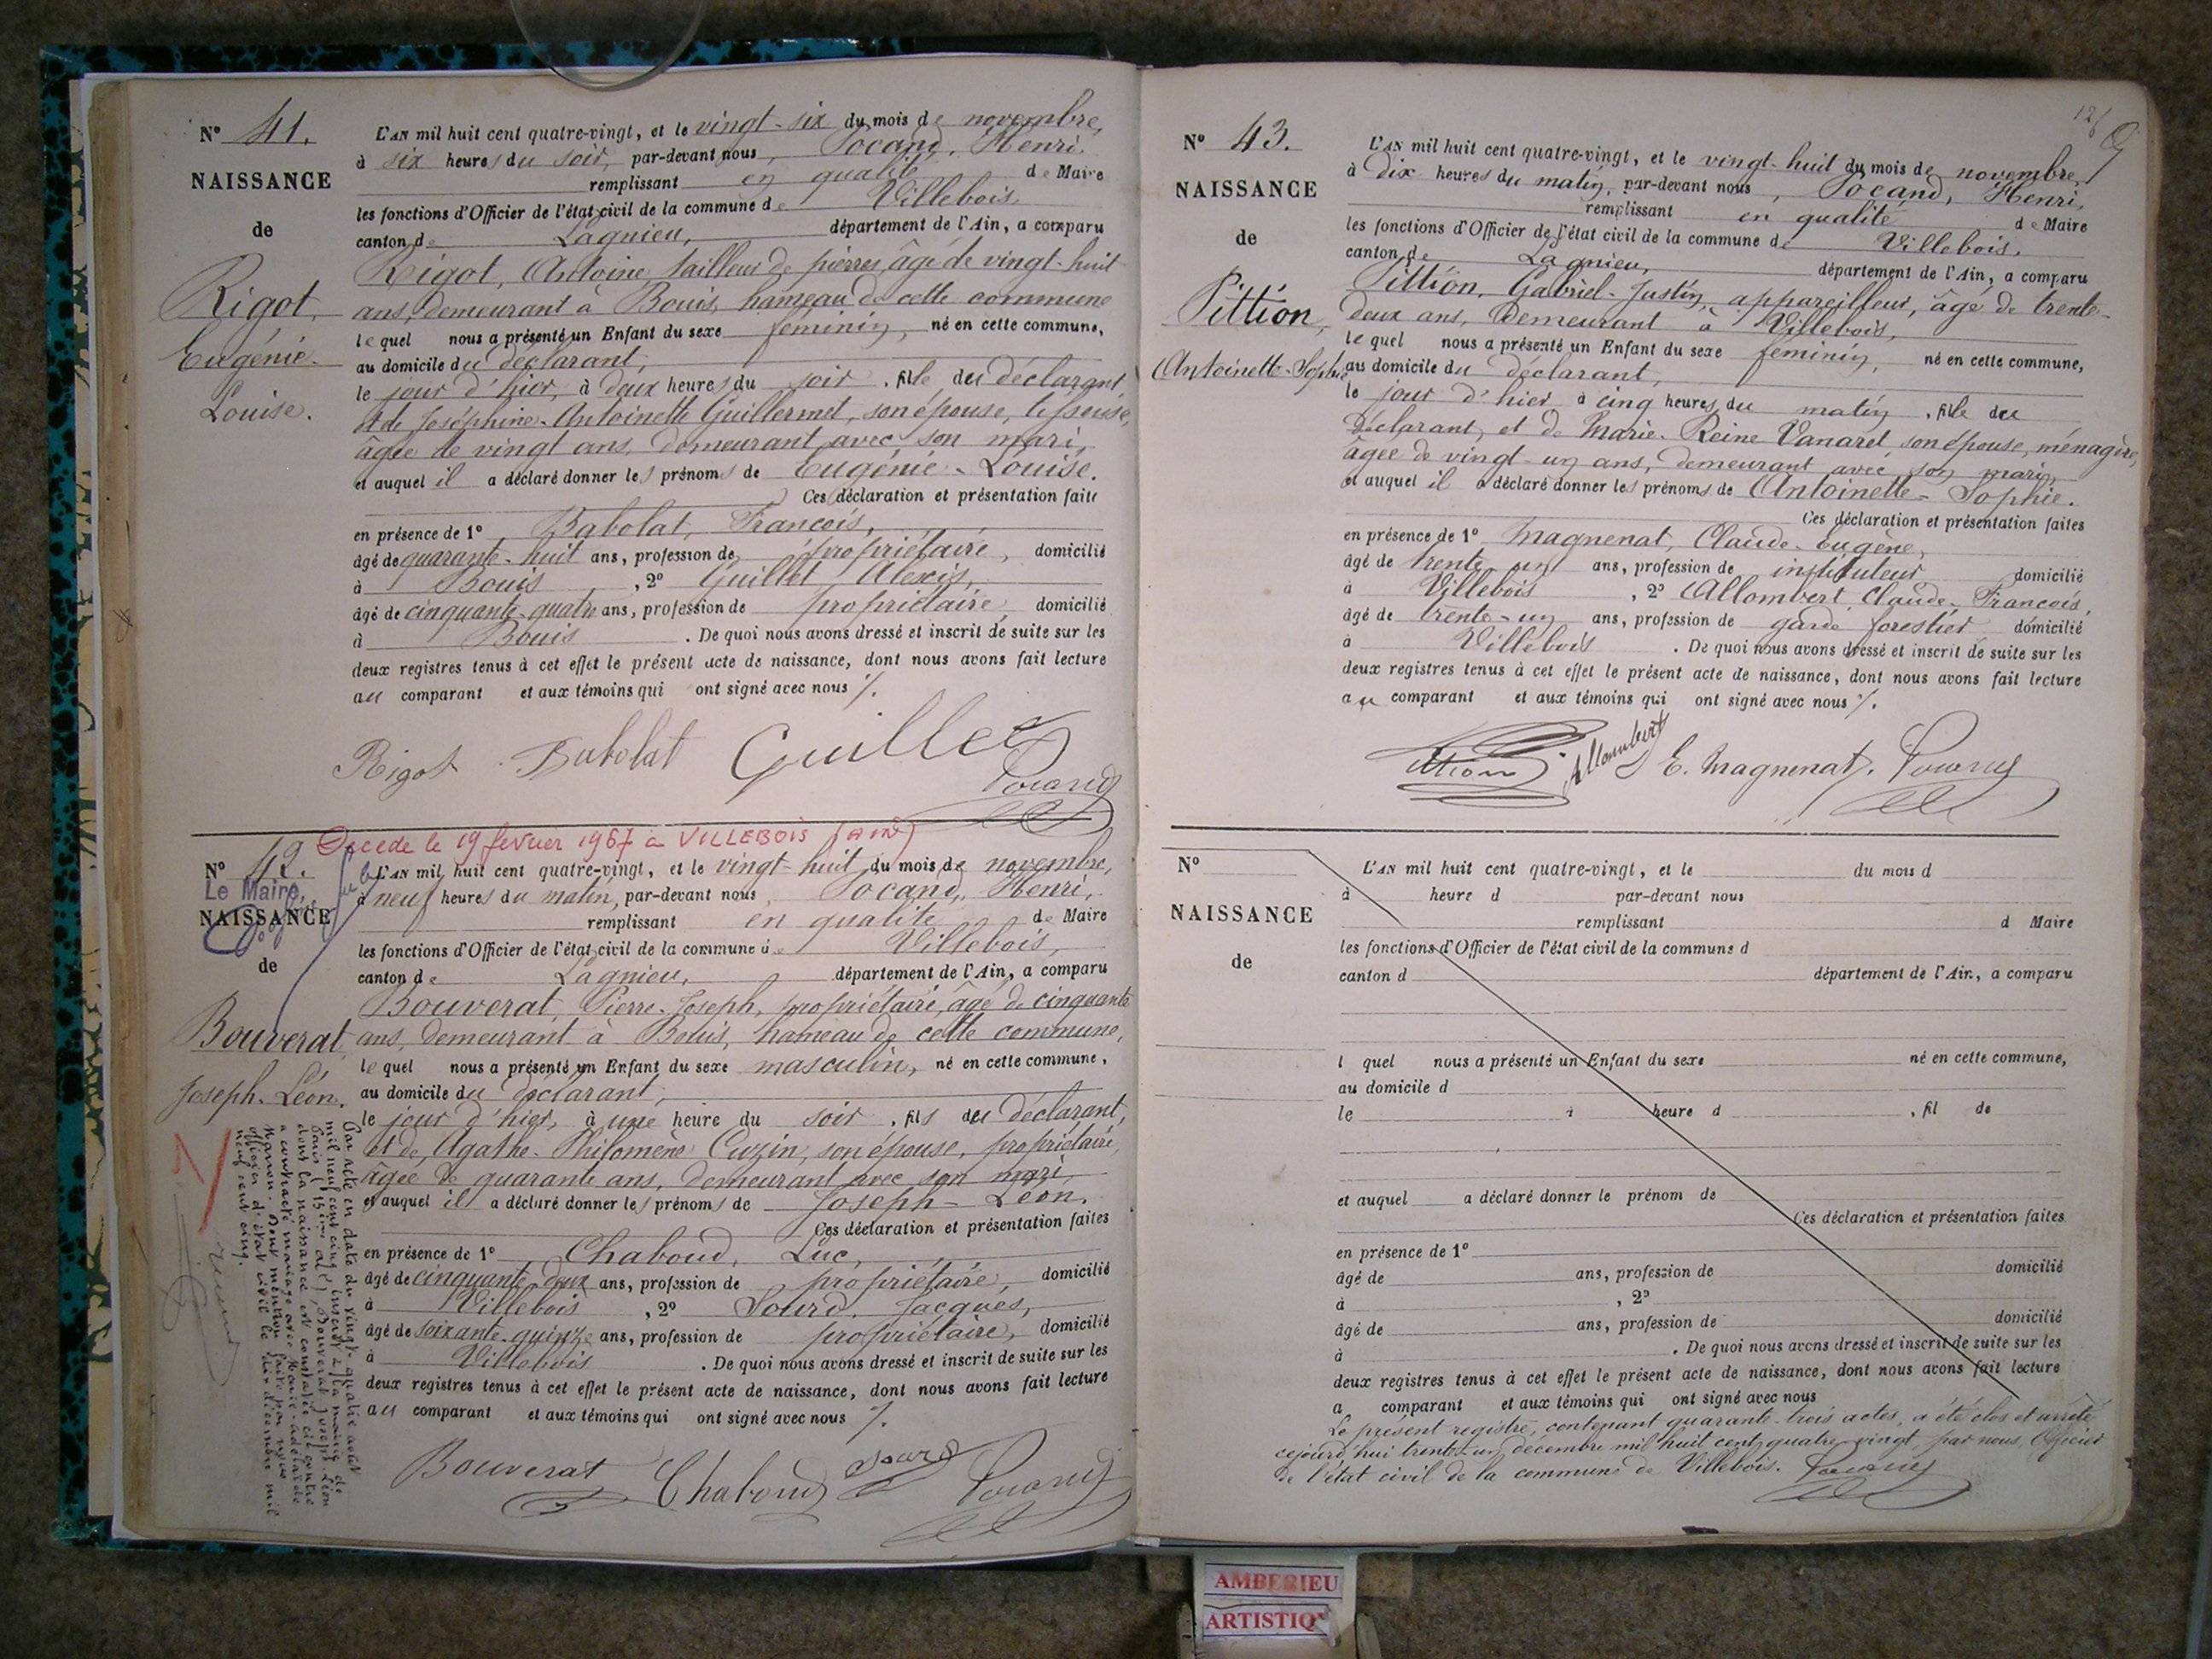 N° 41.
NAISSANCE
de
Rigot,
Eugénie-
Louise.
L'AN mil huit cent quatre-vingt, et le vingt-six du mois de novembre,
à six heures du soir, par-devant nous, Pocand, Henri,
remplissant en qualité de Maire
les fonctions d'Officier de l'état civil de la commune de Villebois,
canton de Lagnieu, département de l'Ain, a comparu
Rigot, Antoine, tailleur de pierres, âgé de vingt-huit
ans, demeurant à Bouis, hameau de cette commune
lequel nous a présenté un Enfant du sexe féminin, né en cette commune,
au domicile du déclarant,
le jour d'hier, à deux heures du soir, fille du déclarant,
et de Joséphine-Antoinette Guillermet, son épouse,
âgée de vingt ans, demeurant avec son mari,
et auquel il a déclaré donner les prénoms de Eugénie-Louise.
Ces déclaration et présentation faites
en présence de 1° Babolat, François,
âgé de quarante-huit ans, profession de propriétaire, domicilié
à Bouis, 2° Guillet Alexis,
âgé de cinquante-quatre ans, profession de propriétaire, domicilié
à Bouis. De quoi nous avons dressé et inscrit de suite sur les
deux registres tenus à cet effet le présent acte de naissance, dont nous avons fait lecture
au comparant et aux témoins qui ont signé avec nous ./.
Rigot Babolat Guillet
Pocand
Décédé le 19 février 1967 à VILLEBOIS (AIN)
N° 42.
Le Maire,
NAISSANCE
de
Bouverat,
Joseph-Léon.
L'AN mil huit cent quatre-vingt, et le vingt-huit du mois de novembre,
à neuf heures du matin, par-devant nous, Pocand, Henri,
remplissant en qualité de Maire
les fonctions d'Officier de l'état civil de la commune de Villebois,
canton de Lagnieu, département de l'Ain, a comparu
Bouverat, Pierre-Joseph, propriétaire, âgé de cinquante
ans, demeurant à Bouis, hameau de cette commune,
lequel nous a présenté un Enfant du sexe masculin, né en cette commune,
au domicile du déclarant,
le jour d'hier, à une heure du soir, fils du déclarant,
et de Agathe-Philomène Cuzin, son épouse, propriétaire,
âgée de quarante ans, demeurant avec son mari,
et auquel il a déclaré donner les prénoms de Joseph-Léon.
Ces déclaration et présentation faites
en présence de 1°, Chaboud, Luc,
âgé de cinquante-deux ans, profession de propriétaire, domicilié
à Villebois, 2° Sourd, Jacques,
âgé de soixante-quinze ans, profession de propriétaire, domicilié
à Villebois. De quoi nous avons dressé et inscrit de suite sur les
deux registres tenus à cet effet le présent acte de naissance, dont nous avons fait lecture
au comparant et aux témoins qui ont signé avec nous ./.
Bouverat Chaboud Sourd Pocand
Par acte en date du vingt-quatre août
mil neuf cent cinq, inscrit à la mairie de
Paris (15ème arrt), Bouverat Joseph Léon
dont la naissance est constatée ci-contre
a contracté mariage avec Marie-Adélaïde
Dont mention faite par nous
officier d'état civil le dix décembre mil
neuf cent cinq.
N° 43.
NAISSANCE
de
Pittion,
Antoinette-Sophie
L'AN mil huit cent quatre-vingt, et le vingt-huit du mois de novembre,
à dix heures du matin, par-devant nous, Pocand, Henri,
remplissant en qualité de Maire
les fonctions d'Officier de l'état civil de la commune de Villebois,
canton de Lagnieu, département de l'Ain, a comparu
Pittion, Gabriel-Justin, appareilleur, âgé de trente-
deux ans, demeurant à Villebois,
lequel nous a présenté un Enfant du sexe féminin, né en cette commune,
au domicile du déclarant,
le jour d'hier à cinq heures du matin, fille du
déclarant, et de Marie-Reine Vanaret, son épouse, ménagère,
âgée de vingt-un ans, demeurant avec son mari,
et auquel il a déclaré donner les prénoms de Antoinette-Sophie.
Ces déclaration et présentation faites
en présence de 1° Magnenat, Claude-Eugène,
âgé de trente-un ans, profession de instituteur domicilié
à Villebois, 2° Allombert, Claude-François,
âgé de trente-un ans, profession de garde forestier domicilié
à Villebois. De quoi nous avons dressé et inscrit de suite sur les
deux registres tenus à cet effet le présent acte de naissance, dont nous avons fait lecture
au comparant et aux témoins qui ont signé avec nous ./.
Pittion Allombert E. Magnenat. Pocand
N°
NAISSANCE
de
L'AN mil huit cent quatre-vingt, et le du mois d
à heure d par-devant nous
remplissant d Maire
les fonctions d'Officier de l'état civil de la commune d
canton d département de l'Ain, a comparu
l quel nous a présenté un Enfant du sexe né en cette commune,
au domicile d
le à heure d , fil de
et auquel a déclaré donner le prénom de
Ces déclaration et présentation faites
en présence de 1°
âgé de ans, profession de domicilié
à , 2°
âgé de ans, profession de domicilié
à . De quoi nous avons dressé et inscrit de suite sur les
deux registres tenus à cet effet le présent acte de naissance, dont nous avons fait lecture
a comparant et aux témoins qui ont signé avec nous
Le présent registre, contenant quarante-trois actes, a été clos et arrêté
cejourd'hui trente-un décembre mil huit cent quatre-vingt, par nous, Officier
de l'état civil de la commune de Villebois. Pocand
AMBERIEU
ARTISTIQ